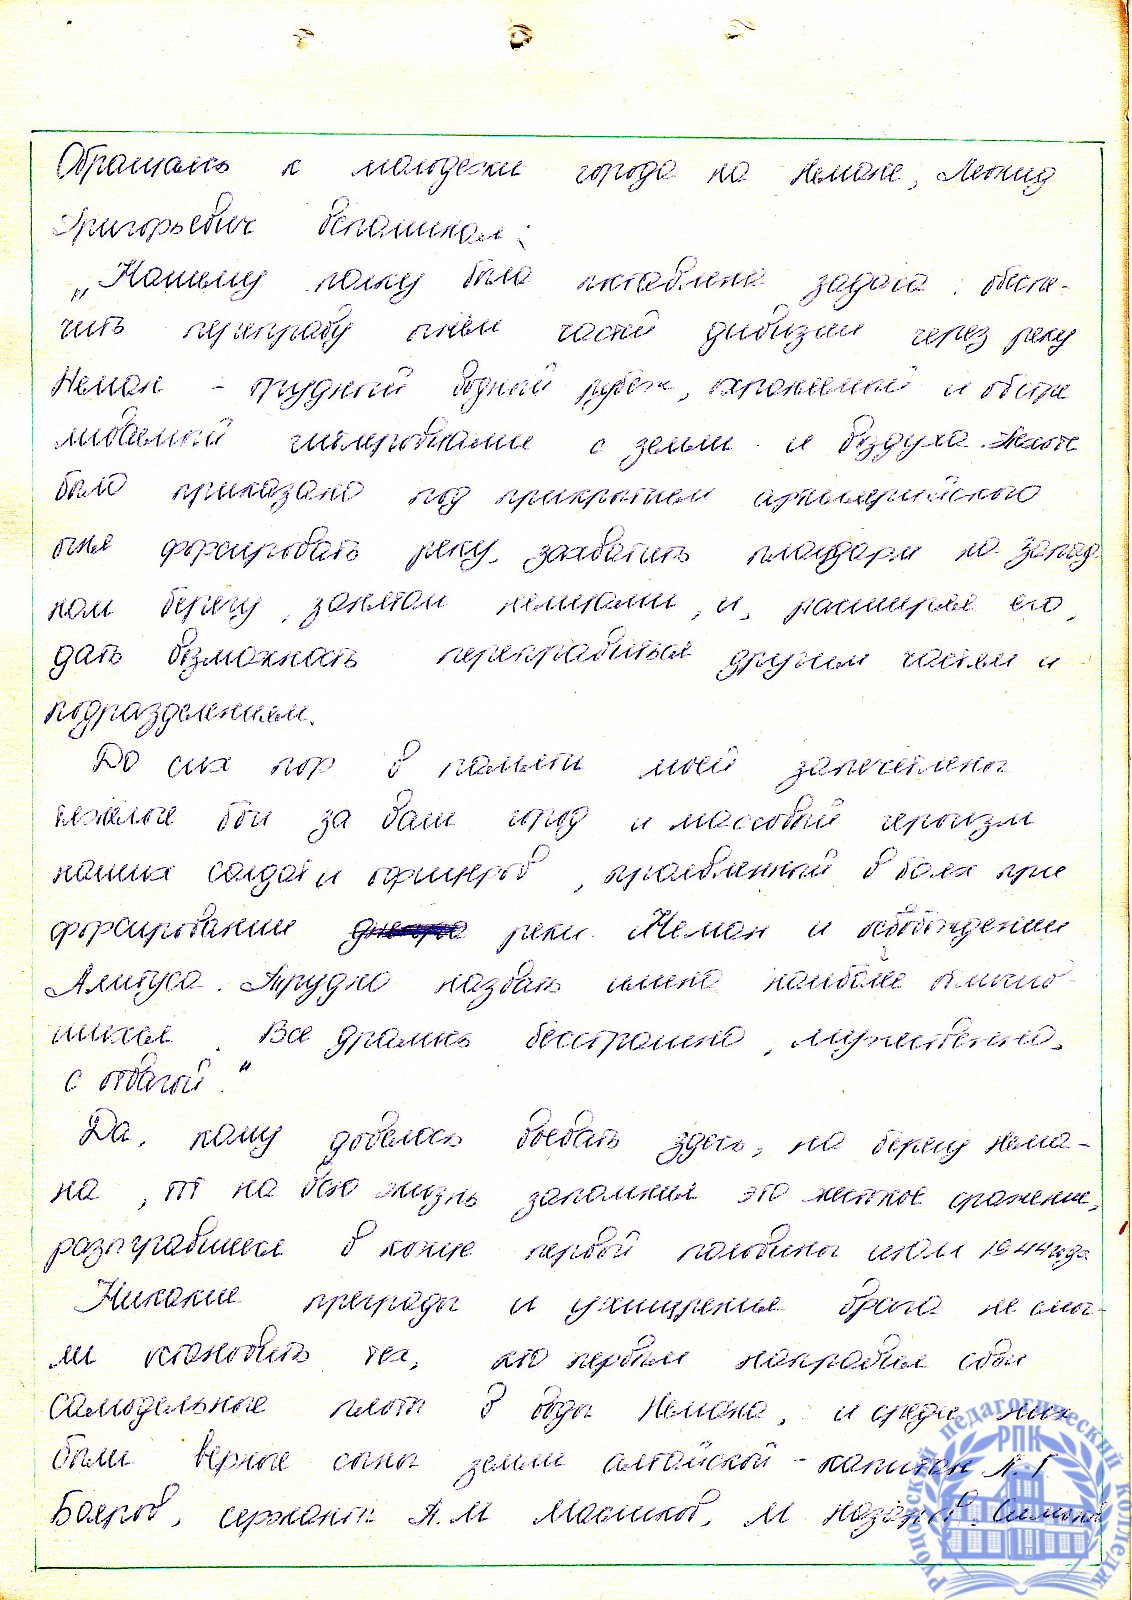 Обращаясь к молодежи города на Немане, Леонид
Григорьевич вспоминал:
„Нашему полку была поставлена задача: обеспе-
чить переправу огнём частей дивизии через реку
Неман - трудный водный рубеж, охраняемый и обстре
ливаемый гитлеровцами с земли и воздуха. Пехоте
было приказано под прикрытием артиллерийского
огня форсировать реку, захватить плацдарм на запад
ном берегу, занятом немцами, и, расширяя его,
дать возможность переправиться другим частям и
подразделениям.
До сих пор в памяти моей запечатлены
тяжелые бои за ваш город и массовый героизм
наших солдат и офицеров, проявленный в боях при
форсировании днепра реки Неман и освобождении
Алитуса. Трудно назвать имена наиболее отличив-
шихся. Все дрались бесстрашно, мужественно,
с отвагой."
Да, кому довелось воевать здесь, на берегу Нема-
на, тот на всю жизнь запомнил это жестокое сражение,
разыгравшееся в конце первой половины июля 1944 года
Никакие преграды и ухищрения врага не смог-
ли остановить тех, кто первым направил свои
самодельные плоты в воды Немана, и среди них
были верные сыны земли алтайской - капитан Л. Г
Бояров, сержанты А. М Масликов, М Назаров,
Рубцовский педагогический колледж
РПК